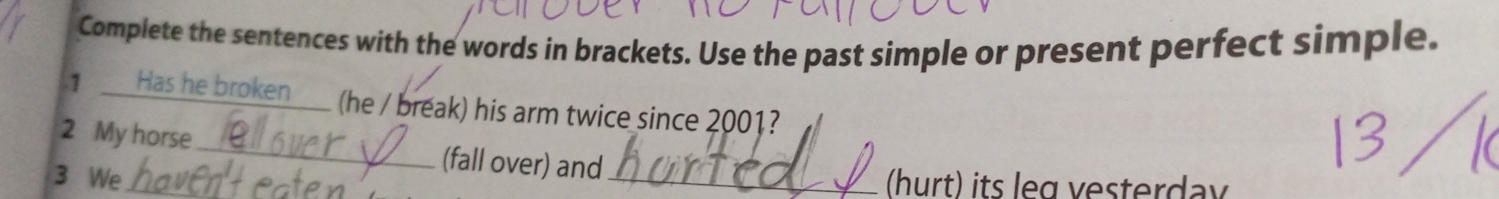 fell over no fall over
Complete the sentences with the words in brackets. Use the past simple or present perfect simple.
1 Has he broken (he / break) his arm twice since 2001?
2 My horse ell over (fall over) and hurted (hurt) its leg yesterday
3 We haven't eaten
13 /